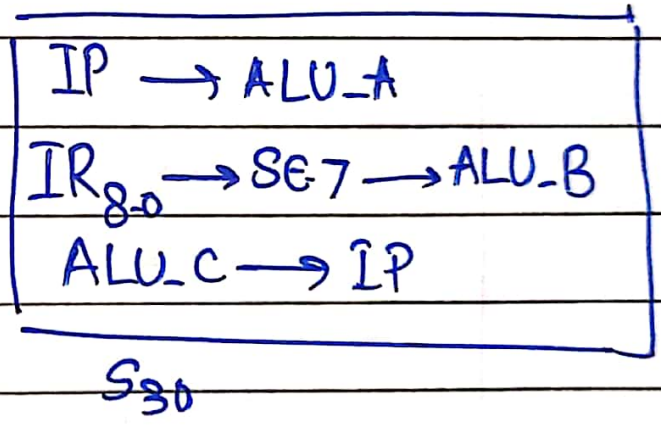 IP → ALU_A
IR8-0 → SE-7 → ALU_B
ALU_C → IP
S30